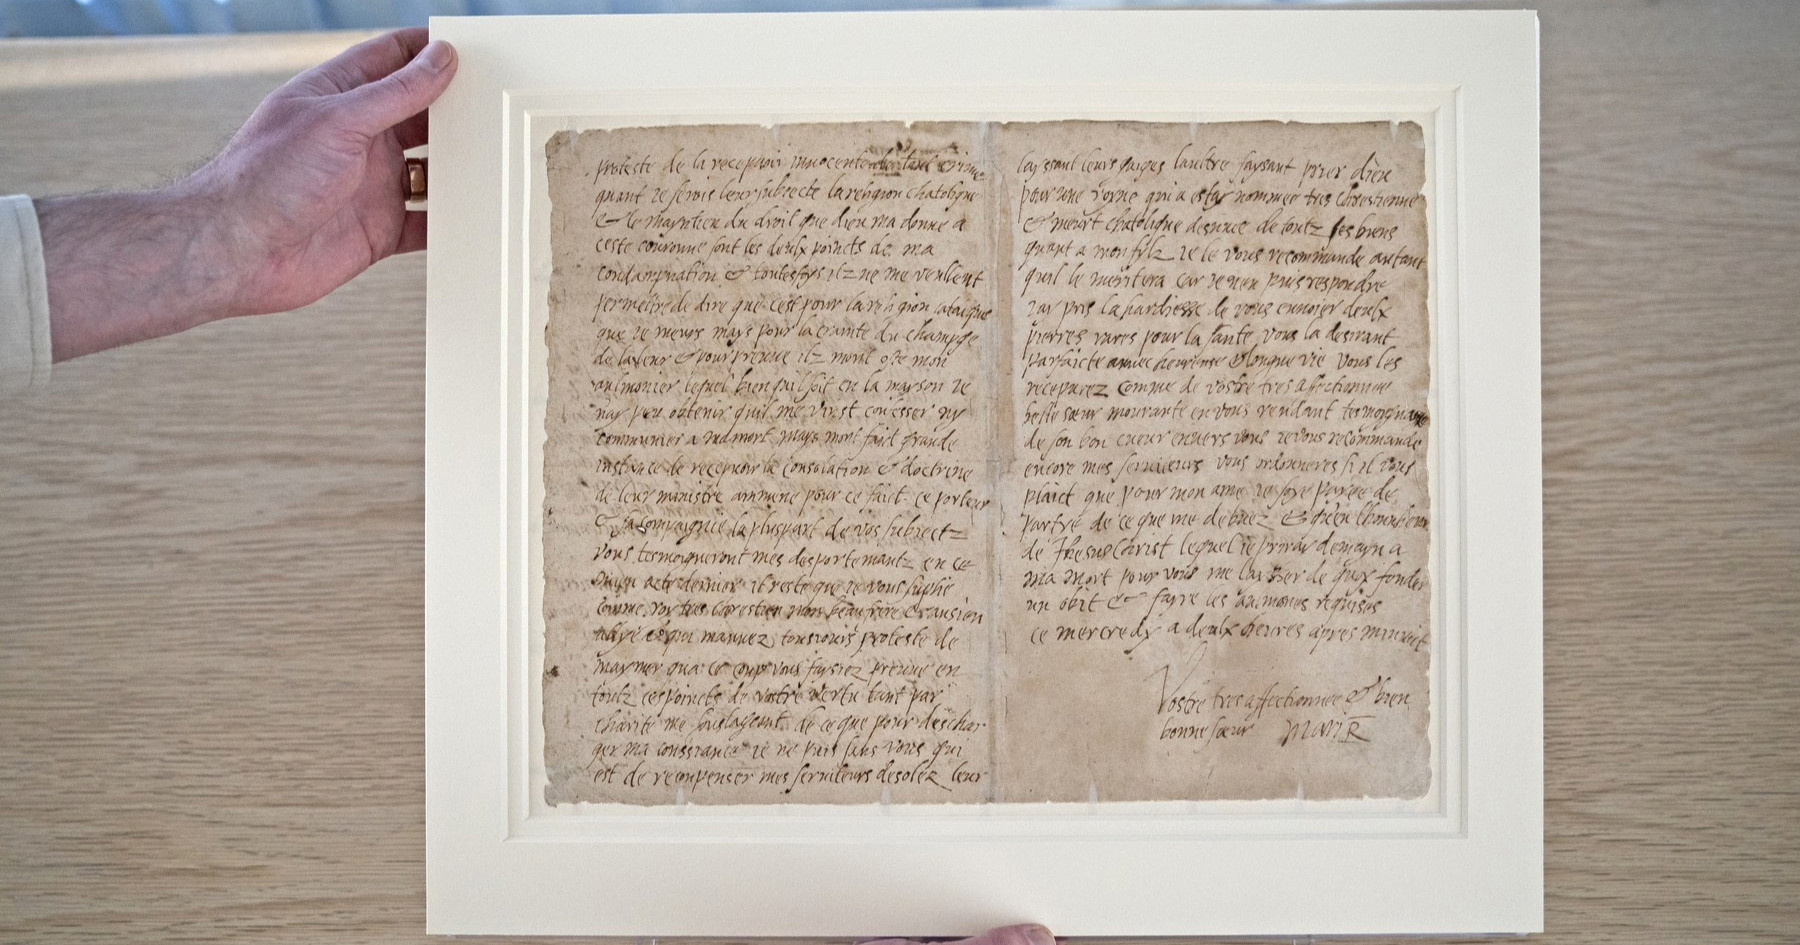 proteste de la recepvoir innocente de tout crime
quant je serois leur subjecte la religion chatolique
& le mayntien du droit que dieu ma donne a
ceste couronne sont les deulx points de ma
condampnation & toutesfoys ilz ne me veullent
permettre de dire que cest pour la religion catolique
que je meurs mays pour la crainte du champge
de la leur & pour preuve ilz mont oste mon
aulmonier lequel bien quil soit en la mayson je
nay peu obtenir quil me vinst confesser ny
communier a ma mort mays mont faict grande
instance de recepvoir la consolation & doctrine
de leur ministre ammene pour ce faict ce porteur
& sa compaignie la pluspart de vos subjectz
vous tesmoigneront mes desportemantz en ce
mien acte dernier il reste que je vous suplie
comme roy tres chrestien mon beau frere & ansien
allye & qui mavvez tousjours proteste de
maymer qua ce coup vous faysiez preuve en
toutz ces points de vostre vertu tant par
charite me soulageant de ce que pour deschar
ger ma conssiance je ne puis sans vous qui
est de recompenser mes serviteurs desolez leur
layssant leurs gaiges laultre faysant prier dieu
pour une royne qui a estay nommee tres chrestienne
& meurt chatolique desnuee de toutz ses biens
quant a mon fylz je le vous recommande autant
quil le meritera car je nen puis respondre
jay pris la hardiesse de vous envoier deulx
pierres rares pour la sante vous la desirant
parfaicte avvec heureuse & longue vie vous les
recepvrez comme de vostre tres affectionnee
belle sœur mourante en vous rendant tesmoygnage
de son bon cueur envers vous je vous recommande
encore mes serviteurs vous ordonneres si il vous
plaict que pour mon ame je soye payee de
partye de ce que me debvez & quen lhonneur
de Jhesus Christ lequel je priray demayn a
ma mort pour vous me laysser de quoy fonder
un obit & fayre les aulmones requises
ce mercredy a deulx heures apres minuict
Vostre tres affectionnee & bien
bonne sœur Mari R